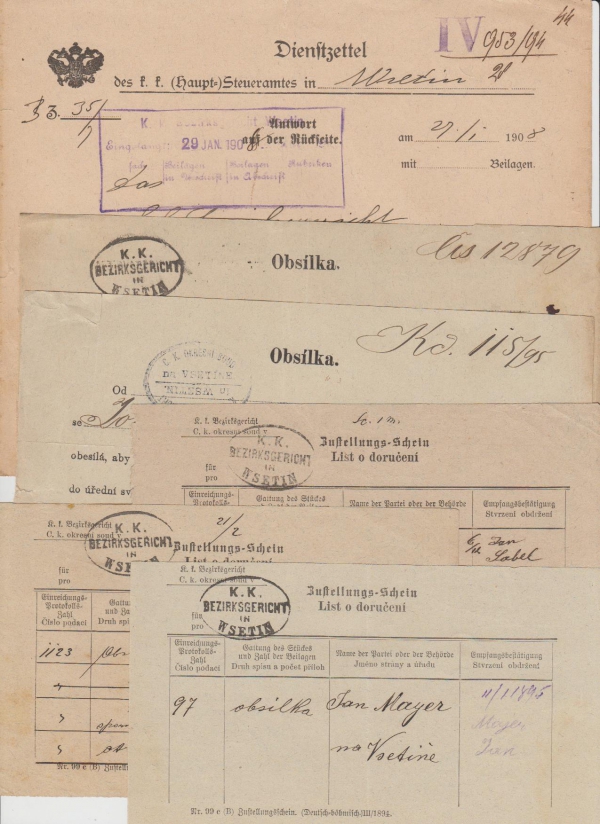 44
IV 953/94
Dienstzettel
des k. k. (Haupt-)Steueramtes in Wsetin
Z. 35/
K. k. Bezirksgericht Wsetin
Antwort
auf der Rückseite.
29 JAN. 1908
am 27/I 1908
mit Beilagen.
Das
K. K.
BEZIRKSGERICHT
IN
WSETIN
Obsílka.
Čís 12879
C. K. OKRESNÍ SOUD
na VSETÍNĚ
in WSETIN
Obsílka.
Kd. 115/95
Od
se
obesílá, aby
do úřední
K. k. Bezirksgericht
C. k. okresní soud v
K. K.
BEZIRKSGERICHT
IN
WSETIN
Zustellungs-Schein
List o doručení
für
pro
Einreichungs-
Protokolls-
Gattung des Stückes
Name der Partei oder der Behörde
Empfangsbestätigung
Stvrzení obdržení
Jan
Sabel
K. k. Bezirksgericht
C. k. okresní soud v
K. K.
BEZIRKSGERICHT
IN
WSETIN
21/2
Zustellungs-Schein
List o doručení
für
pro
Einreichungs-
Protokolls-
Zahl
Číslo podací
1123
Nr. 99 e (B) Zustell
K. k. Bezirksgericht
C. k. okresní soud v
K. K.
BEZIRKSGERICHT
IN
WSETIN
Zustellungs-Schein
List o doručení
für
pro
Einreichungs-
Protokolls-
Zahl
Číslo podací
Gattung des Stückes
und Zahl der Beilagen
Druh spisu a počet příloh
Name der Partei oder der Behörde
Jméno strany a úřadu
Empfangsbestätigung
Stvrzení obdržení
97 obsílka Jan Mayer
na Vsetíně
11/1 1895
Mayer
Jan
Nr. 99 e (B) Zustellungsschein. (Deutsch-böhmisch) III/1894.